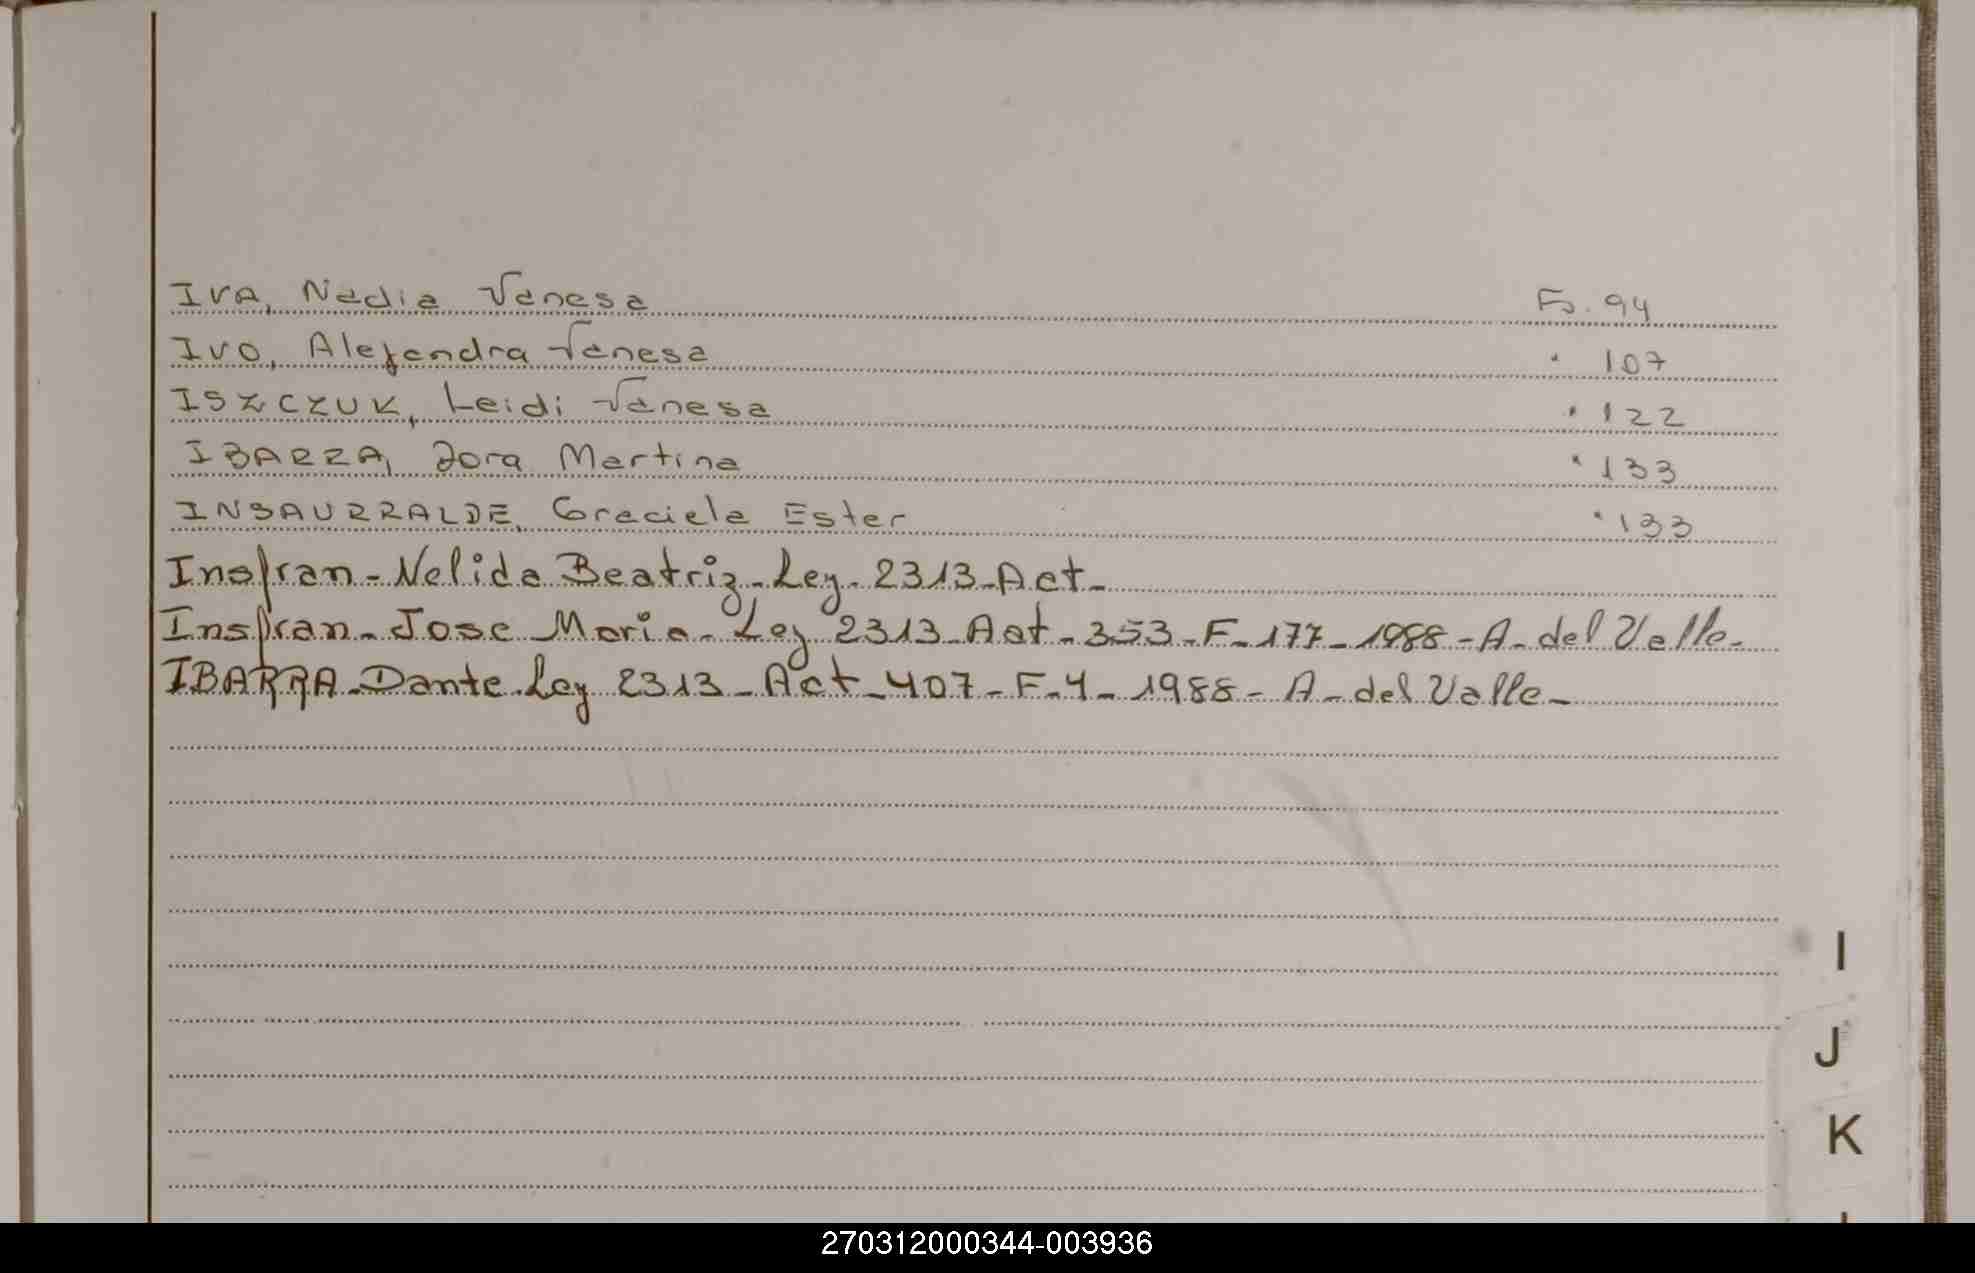 IVA, Nadia Vanesa Fo. 94
IVO, Alejandra Vanesa " 107
ISZCZUK, Leidi Vanesa " 122
IBARRA, Dora Martina " 133
INSAURRALDE, Graciela Ester " 133
Insfran - Nelida Beatriz - Ley - 2313 - Act -
Insfran - Jose Maria - Ley 2313 - Act - 353 - F - 177 - 1988 - A - del Valle -
IBARRA - Dante - Ley 2313 - Act - 407 - F - 4 - 1988 - A - del Valle -
I
J
K
270312000344-003936